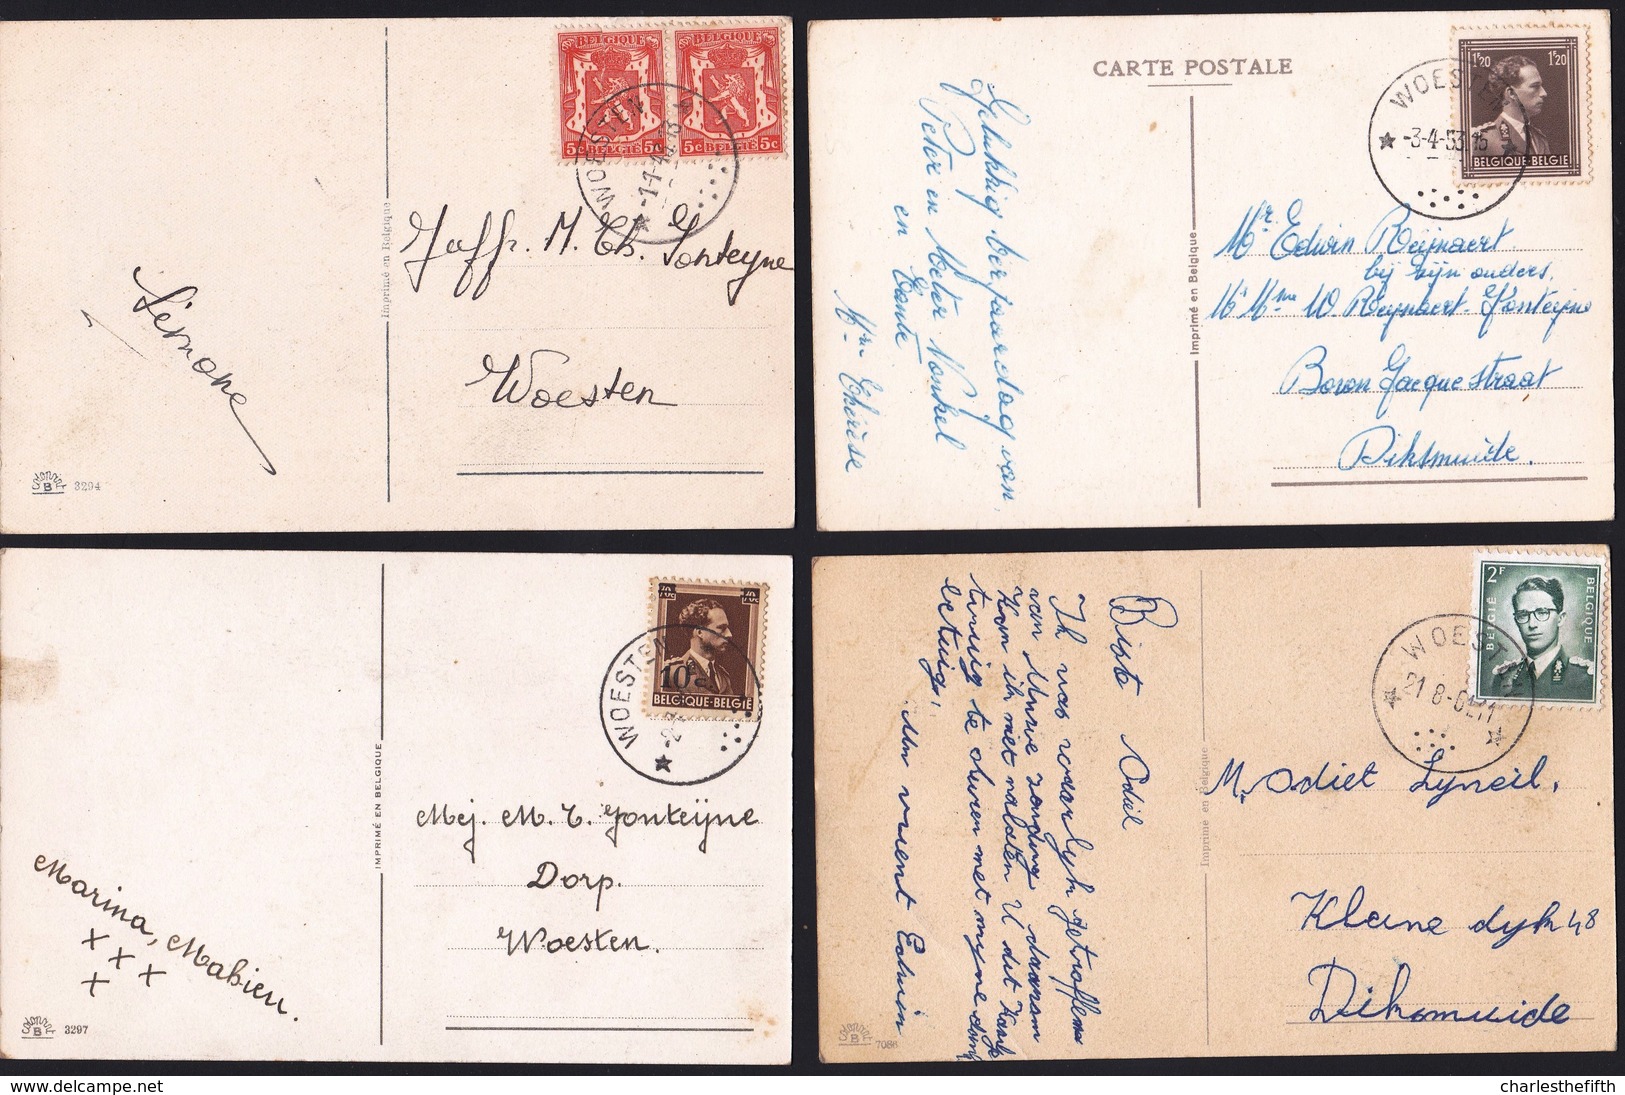 BELGIQUE BELGIQUE
5c BELGIË 5c 5c BELGIË 5c
WOESTEN
Joffr. M. Th. Fonteyne
Woesten
Simone
Imprimé en Belgique
B 3294
CARTE POSTALE
1F20 1F20
BELGIQUE-BELGIE
WOESTEN
-3-4-53 15
Gelukkig verjaardag van
Peter en Meter Nonkel
en Tante
Mme Thérèse
Imprimé en Belgique
Mr. Edwin Reijnaert.
bij zijn ouders.
Mr Mme W. Reijnaert-Fonteijne
Baron Jacquestraat
Diksmuide.
70c 70c
10c
BELGIQUE-BELGIE
WOESTEN
Mej. M. T. Fonteijne
Dorp.
Woesten.
Marina, Mahieu.
+ + + +
IMPRIMÉ EN BELGIQUE
B 3297
2F
BELGIË BELGIQUE
WOESTEN
21 8-
Beste Odiel
Ik was waarlyk getroffen
van Uwe zending daarom
kan ik niet nalaten U dit kaartje
te sturen met myne dank
betuig.
Uw vriend Edwin
Imprimé en Belgique
M. Odiel Lyneil.
Kleine dyk 48
Diksmuide
B 7086
delcampe.net
charlesthefifth